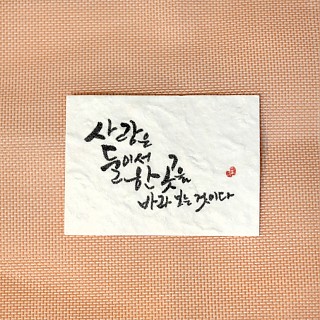 사랑은
둘이서
한 곳을
바라 보는 것이다